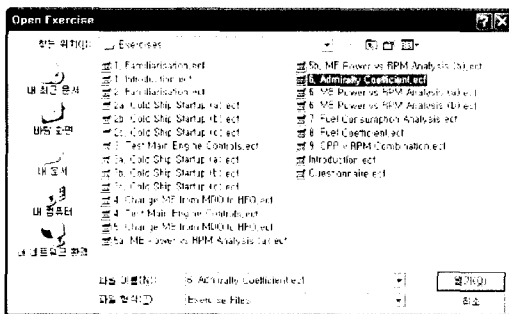 Open Exercise
찾는 위치(I):
Exercises
내 최근 문서
바탕 화면
내 문서
내 컴퓨터
내 네트워크 환경
1. Familiarisation.ect
1. Introduction.ect
2. Familiarisation.ect
2a. Cold Ship Startup (a).ect
2b. Cold Ship Startup (b).ect
2c. Cold Ship Startup (c).ect
3. Test Main Engine Controls.ect
3a. Cold Ship Startup (a).ect
3b. Cold Ship Startup (b).ect
3c. Cold Ship Startup (c).ect
4. Change ME from MDO to HFO.ect
4. Test Main Engine Controls.ect
5. Change ME from MDO to HFO.ect
5a. ME Power vs RPM Analysis (a).ect
5b. ME Power vs RPM Analysis (b).ect
6. Admiralty Coefficient.ect
6. ME Power vs RPM Analysis (a).ect
6. ME Power vs RPM Analysis (b).ect
7. Fuel Consumption Analysis.ect
8. Fuel Coefficient.ect
9. CPP v RPM Combination.ect
Introduction.ect
Questionnaire.ect
파일 이름(N):
6. Admiralty Coefficient.ect
열기(O)
파일 형식(T):
Exercise Files
취소